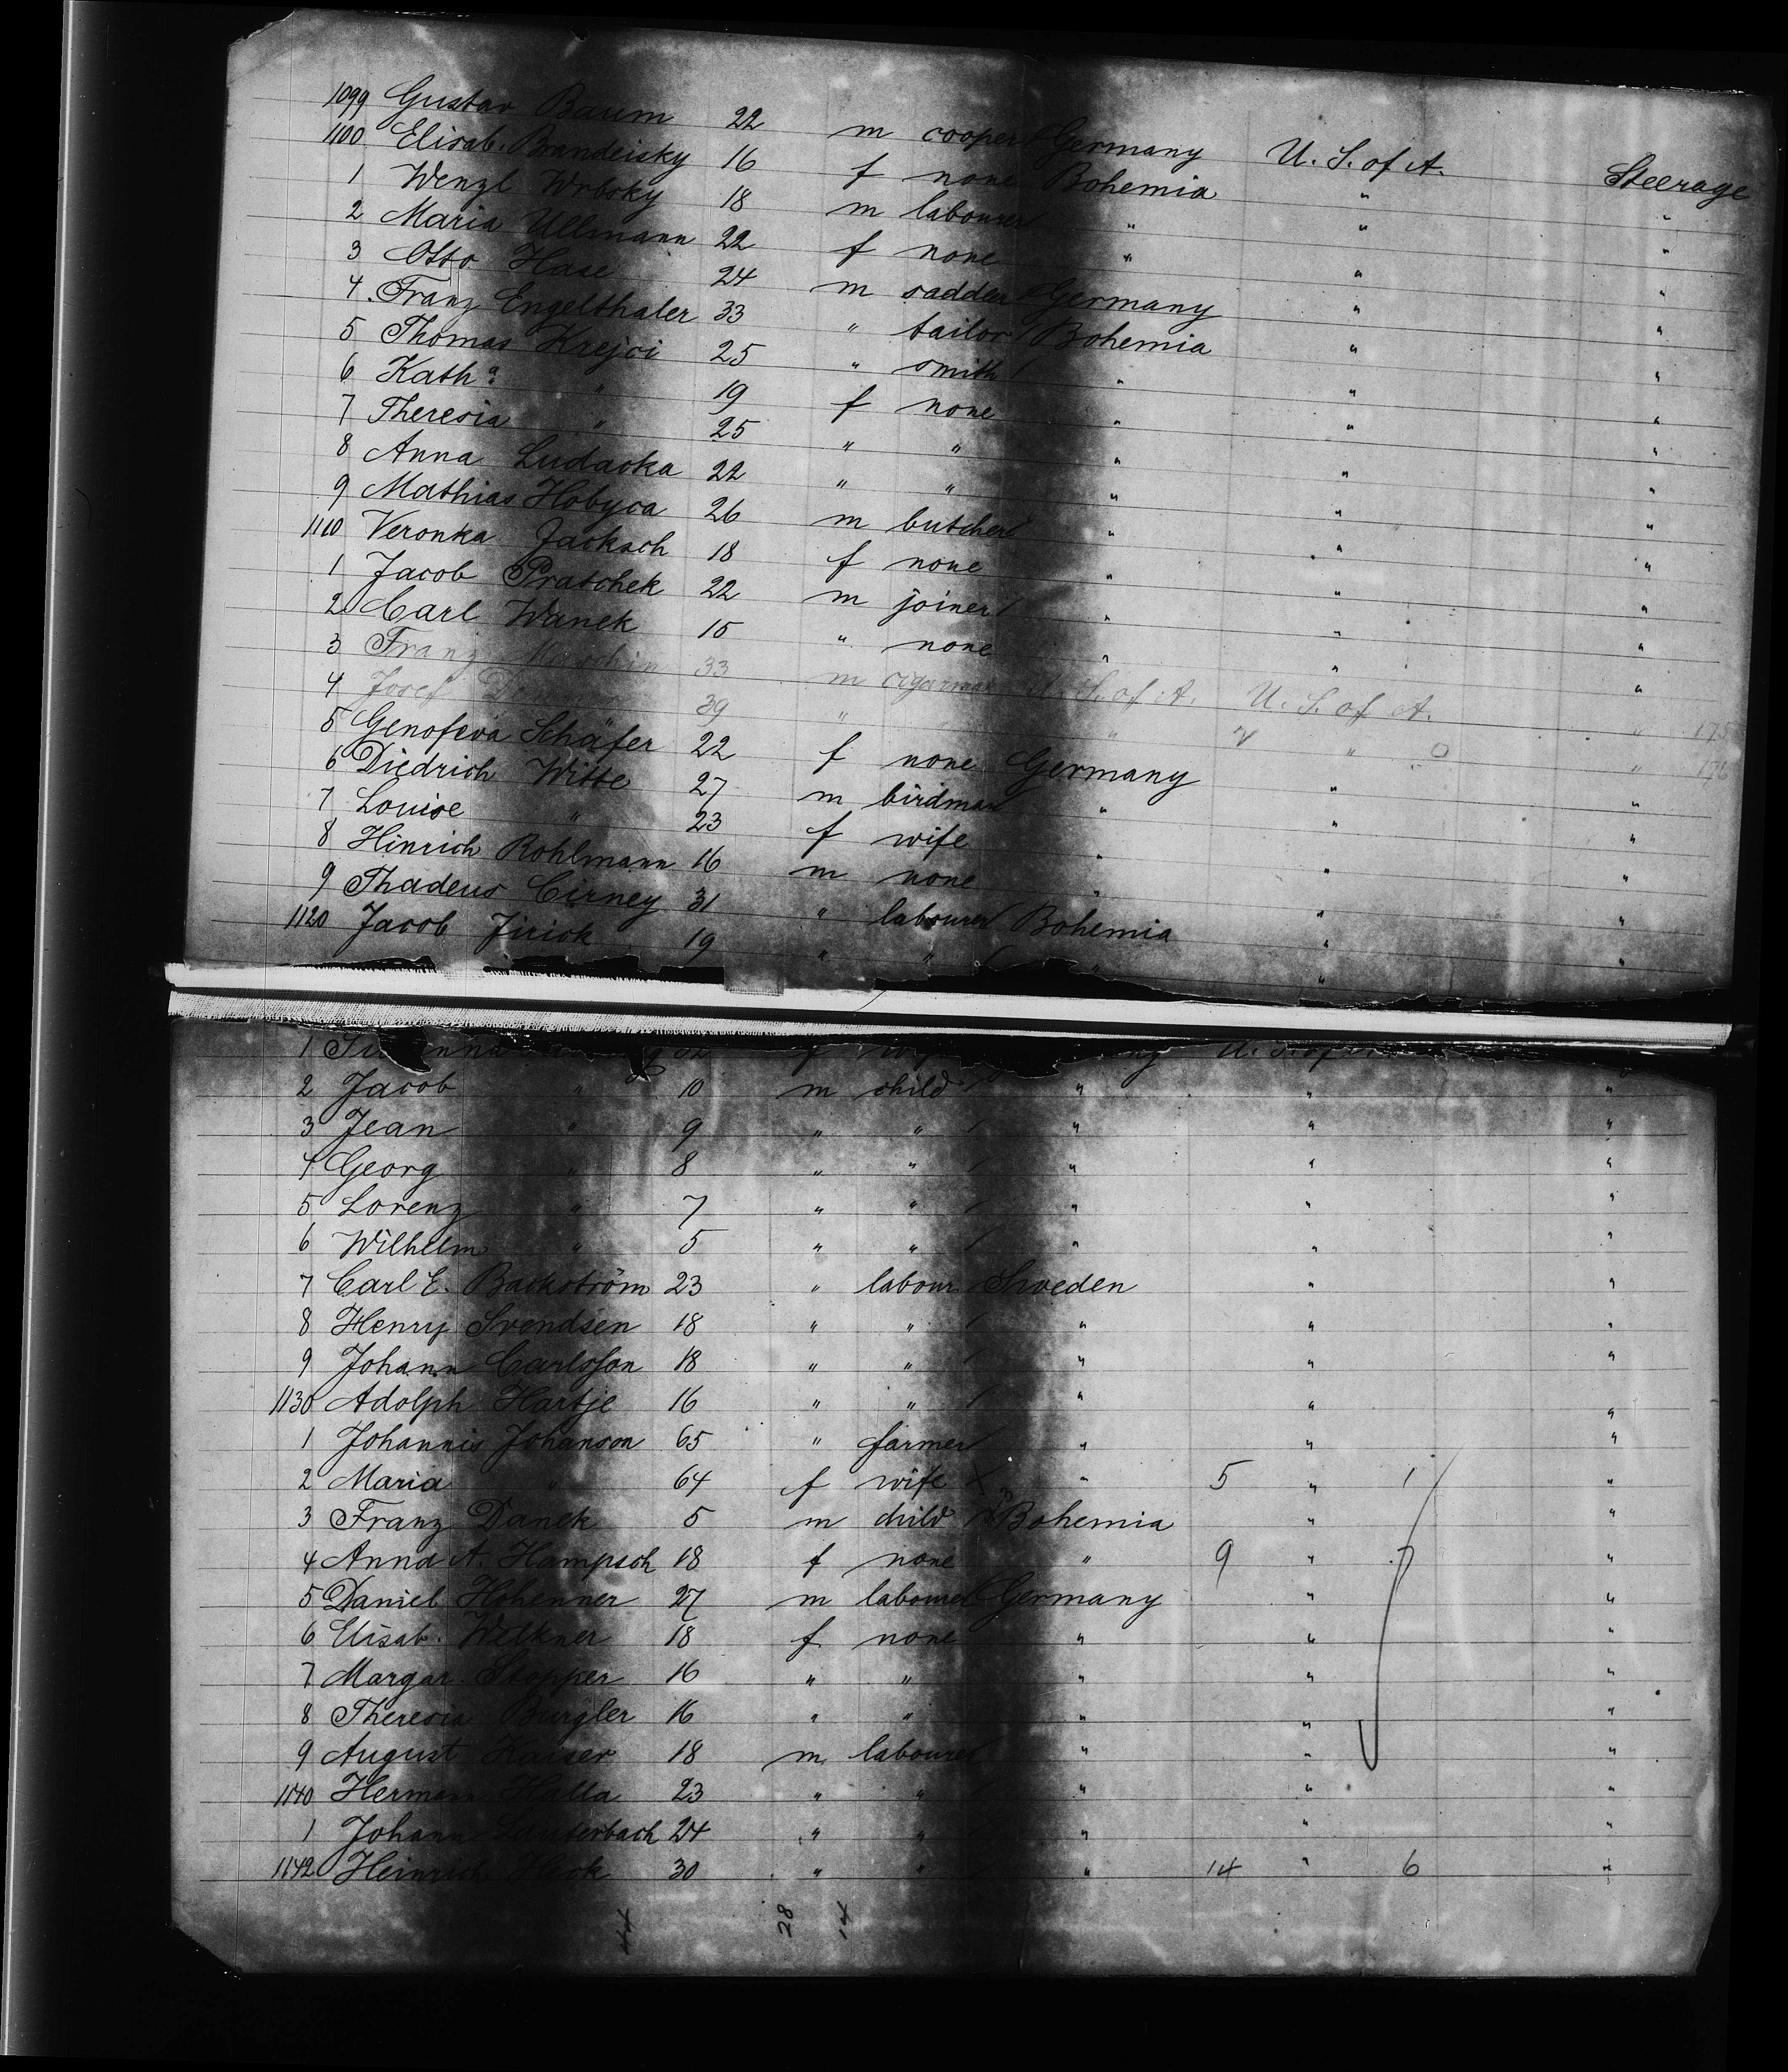 1099 Gustav Baum 22 m cooper Germany U. S. of A. Steerage
1100 Elisab. Brandeisky 16 f none Bohemia " "
1 Wenzl Wrbsky 18 m labourer " " "
2 Maria Ullmann 22 f none " " "
3 Otto Hase 24 m saddler Germany " "
4 Franz Engelthaler 33 " tailor Bohemia " "
5 Thomas Krejci 25 " smith " " "
6 Kath a " 19 f none " " "
7 Theresia " 25 " " " " "
8 Anna Ludacka 22 " " " " "
9 Mathias Hobyca 26 m butcher " " "
1110 Veronka Jacksch 18 f none " " "
1 Jacob Pratschek 22 m joiner " " "
2 Carl Wanek 15 " none " " "
3 Franz 33 m cigarmak U. S. of A. U. S. of A. " 175
4 Josef 39 " " " " "
5 Genofeva Schäfer 22 f none Germany " "
6 Diedrich Witte 27 m birdman " " "
7 Louise " 23 f wife " " "
8 Hinrich Rohlmann 16 m none " " "
9 Thadeus Cirney 31 " labourer Bohemia " "
1120 Jacob Jirick 19 " " " "
1 32 f
2 Jacob " 10 m child " " "
3 Jean " 9 " " " " "
4 Georg " 8 " " " " "
5 Lorenz " 7 " " " " "
6 Wilhelm " 5 " " " " "
7 Carl E. Backström 23 " labour Sweden " "
8 Henry Svendsen 18 " " " " "
9 Johann Carlsson 18 " " " " "
1130 Adolph Hartje 16 " " " " "
1 Johannis Johanson 65 " farmer " " "
2 Maria " 64 f wife " 5 " 1 "
3 Franz Danek 5 m child Bohemia " "
4 Anna A. Hampsch 18 f none " 9 " "
5 Daniel Hohenner 27 m labourer Germany " "
6 Elisab. Welkner 18 f none " " "
7 Margar. Stopper 16 " " " " "
8 Theresia Burgler 16 " " " " "
9 August Kaiser 18 m labourer " " "
1140 Hermann Halla 23 " " " " "
1 Johann Lauterbach 24 " " " " "
1142 Heinrich Heck 30 " " " 14 " 6 "
28 14